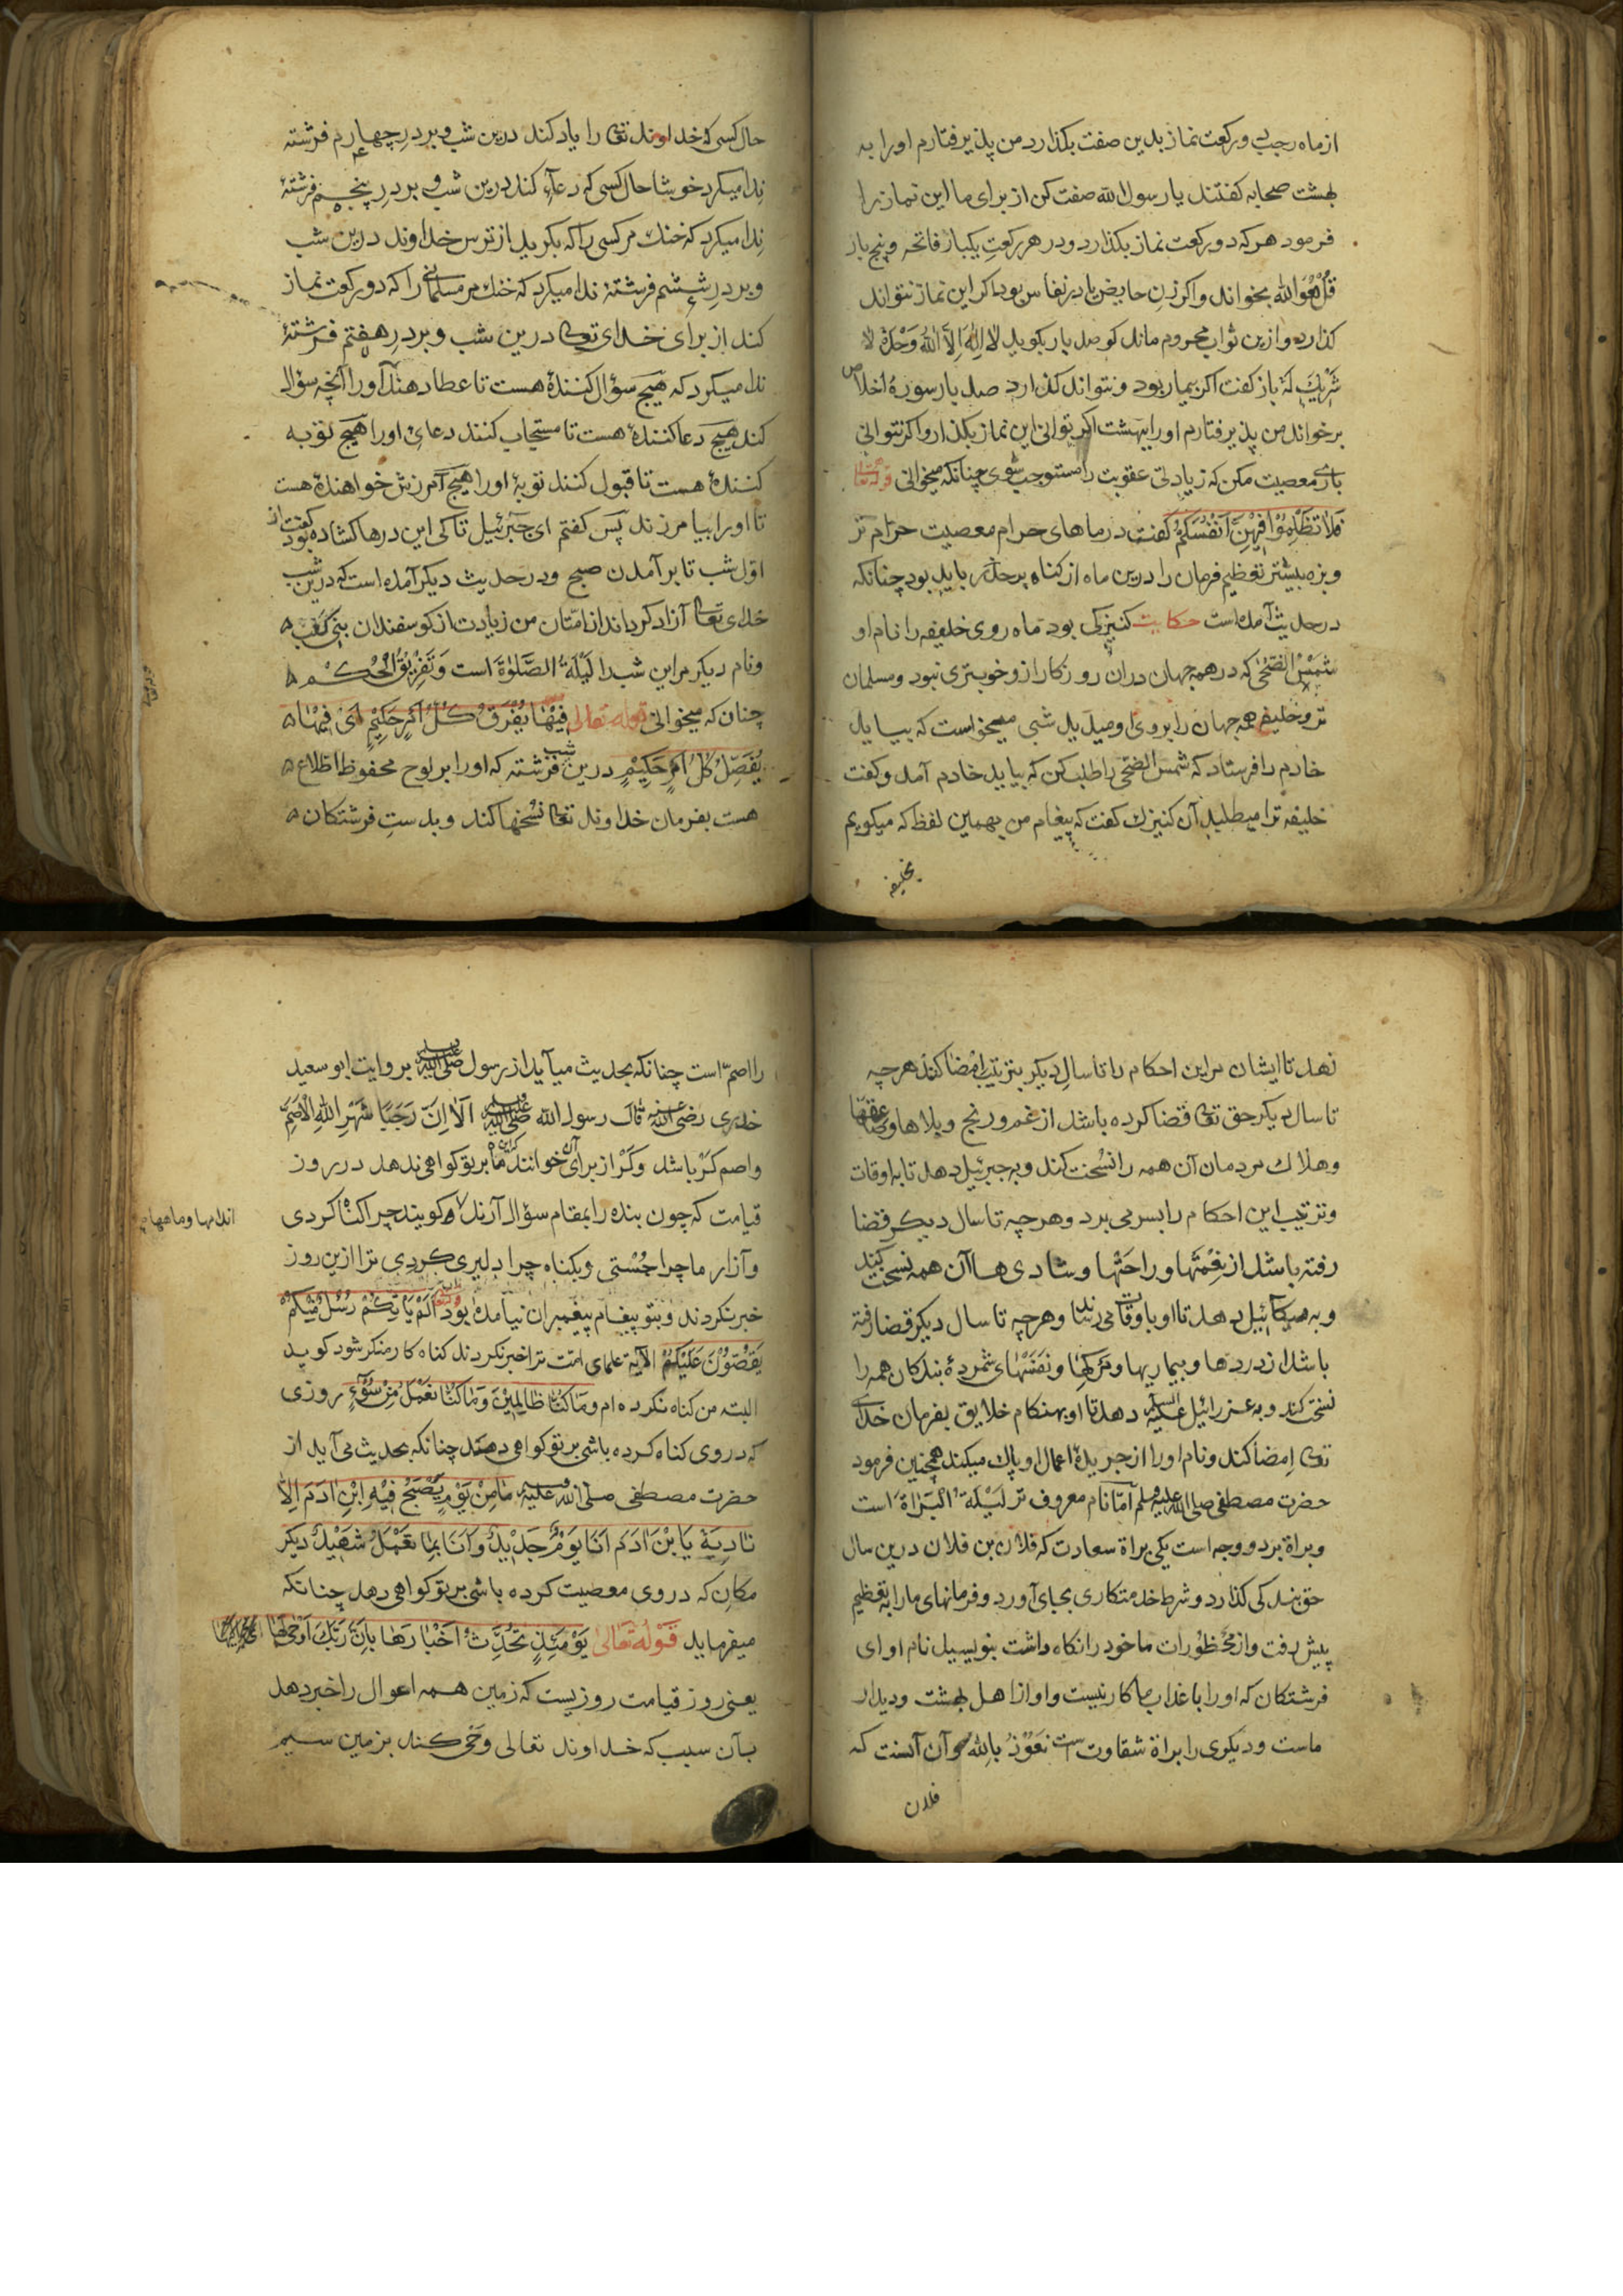 از ماه رجب دو ركعت نماز بدين صفت بكذارد من پذيرفتارم او را به
بهشت صحابه كفتند يا رسول الله صفت كن از براى ما اين نماز را
فرمود هر كه دو ركعت نماز بكذارد و در هر ركعت يكبار فاتحه و پنج بار
قُلْ هُوَ الله بخواند و اكر زن حايض يا در نفاس بود اكر اين نماز نتواند
كذارد و ازين ثواب محروم ماند كو صد بار بكويد لا اِلٰهَ اِلاَّ اللهُ وَحْدَهُ لاَ
شَرِيْكَ لَهُ باز كفت اكر بيمار بود و نتواند كذارد صد بار سورهٔ اخلاص
برخواند من پذيرفتارم او را ببهشت اكر توانى اين نماز بكذار و اكر نتوانى
بارى معصيت مكن كه زيادتى عقوبت را مستوجب شوى چنانكه ميخوانى قوله تعالى
فَلاَ تَظْلِمُوْا فِيْهِنَّ اَنْفُسَكُمْ كفت در ماهاى حرام معصيت حرام تر
و بزه بيشتر تعظيم فرمان را درين ماه از كناه بر حذر بايد بود چنانكه
در حديث آمده است حكايت كنيزكى بود ماه روى خليفه را نام او
شَمْسُ الضُّحٰى كه در همه جهان دران روزكار ازو خوبترى نبود و مسلمان
تر و خليفه همه جهان را بروى او ميديد شبى ميخواست كه بيايد
خادم را فرستاد كه شمس الضحى را طلب كن كه بيايد خادم آمد و كفت
خليفه ترا ميطلبد آن كنيزك كفت كه پيغام من بهمين لفظ كه ميكويم
بخليفه
حال كسى كه خداوند تعالى را ياد كند درين شب و بر درِ چهارم فرشته
نِدا ميكرد خوشا حال كسى كه دعاء كند درين شب و بر درِ پنجم فرشتهٔ
نِدا ميكرد كه خنك مر كسى را كه بكريد از ترس خداوند درين شب
و بر درِ ششم فرشتهٔ ندا ميكرد كه خنك مر مسلمانى را كه دو ركعت نماز
كند از براى خداى تعالى درين شب و بر درِ هفتم فرشتهٔ
ندا ميكرد كه هيچ سؤال كنندهٔ هست تا عطا دهند او را آنچه سؤال
كند هيچ دعا كنندهٔ هست تا مستجاب كنند دعاى او را هيچ توبه
كنندهٔ هست تا قبول كنند توبهٔ او را هيچ آمرزش خواهندهٔ هست
تا او را بيامرزند پس كفتم اى جبرئيل تا كى اين درها كشاده بود كفت از
اوّل شب تا بر آمدن صبح و در حديث ديكر آمده است كه درين شب
خداى تعالى آزاد كرداند از امّتان من زيادت از كوسفندان بنى كلب
و نام ديكر مر اين شب را لَيْلَةُ الصَّلٰوةَ است وَ تَفْرِيْقُ الْحُكْم
چنان كه ميخوانى قوله تعالى فِيْهَا يُفْرَقُ كُلُّ اَمْرٍ حَكِيْمٍ اَىْ فِيْهَا
يُفَصَّلُ كُلُّ اَمْرٍ حَكِيْمٍ درين شب فرشته كه او را بر لوح محفوظ اطلاع
هست بفرمان خداوند تعالى نسخها كند و بدستِ فرشتكان
نهد تا ايشان مر اين احكام را تا سالِ ديكر بترتيب اِمْضا كنند هر چه
تا سال ديكر حق تعالى قضا كرده باشد از غم و رنج و بلاها و
و هلاك مردمان آن همه را نسخت كند و به جبرئيل دهد تا به اوقات
و ترتيب اين احكام را بسر مى برد و هر چه تا سال ديكر قضا
رفته باشد از نِعْمَتها و راحَتْها و شاديها آن همه نسخت كند
و به ميكائيل دهد تا او باوقات مى رساند و هر چه تا سال ديكر قضا رفته
باشد از دردها و بيماريها و مركها و نفسهاى شمردهٔ بندكان همه را
نسخت كند و به عزرائيل عليه السلام دهد تا او بهنكام خلايق بفرمان خداى
تعالى اِمضا كند و نام او را از جريدهٔ اعمال او پاك ميكند همچنين فرمود
حضرت مصطفى صلى الله عليه وسلم امّا نام معروف تر لَيْلَةُ الْبَرَاةَ است
و براة بر دو وجه است يكى براة سعادت كه فلان بن فلان درين سال
حق بندكى كذارد و شرط خدمتكارى بجاى آورد و فرمانهاى ما را به تعظيم
پيش رفت و از محظورات ما خود را نكاه داشت بنويسيد نام او اى
فرشتكان كه او را با عذاب ما كار نيست و او از اهل بهشت و ديدار
ماست و ديكرى را براة شقاوت است نَعُوْذُ بِاللهِ و آن آنست كه
فلان
را اصمّ است چنانكه بحديث ميآيد از رسول صلى الله عليه وسلم بروايت ابو سعيد
خدرى رضى الله عنه قال رسول الله صلى الله عليه وسلم اَلاَ اِنَّ رَجَبًا شَهْرُ اللهِ الْاَصَمُّ
و اصم كَرْ باشد و كَرْ از براى آن خوانند كه اين ماه بر تو كواهى ندهد در روز
قيامت كه چون بنده را بمقام سؤال آرند و كويند چرا كناه كردى
و آزار ما چرا جُسْتى و بكناه چرا دليرى كردى ترا ازين روز
خبر نكردند و بتو پيغام پيغمبران نيامده بود قوله تعالى اَلَمْ يَأْتِكُمْ رُسُلٌ مِنْكُمْ
يَقُصُّوْنَ عَلَيْكُمْ الآية علماى امّت ترا خبر نكردند كناه كار منكر شود كويد
البته من كناه نكرده ام وَ مَا كُنَّا ظَالِمِيْنَ وَ مَا كُنَّا نَعْمَلُ مِنْ سُوْءٍ روزى
كه در وى كناه كرده باشى بر تو كواهى دهند چنانكه بحديث مى آيد از
حضرت مصطفى صلى الله عليه وسلم مَا مِنْ يَوْمٍ يُصْبِحُ فِيْهِ ابْنِ اٰدَمَ اِلاَّ
نَادِيَة يَا بْنَ اٰدَم اَنَا يَوْمٌ جَدِيْدٌ وَ اَنَا بِمَا تَعْمَلُ شَهِيْدٌ ديكر
مكان كه در وى معصيت كرده باشى بر تو كواهى دهد چنانكه
ميفرمايد قَوْلُهُ تَعَالٰى يَوْمَئِذٍ تُحَدِّثُ اَخْبَارَهَا بِاَنَّ رَبَّكَ اَوْحٰى لَهَا
يعنى روز قيامت روزيست كه زمين همه احوال را خبر دهد
بآن سبب كه خداوند تعالى وَحْى كند بزمين سيم
اندامها و ماهها